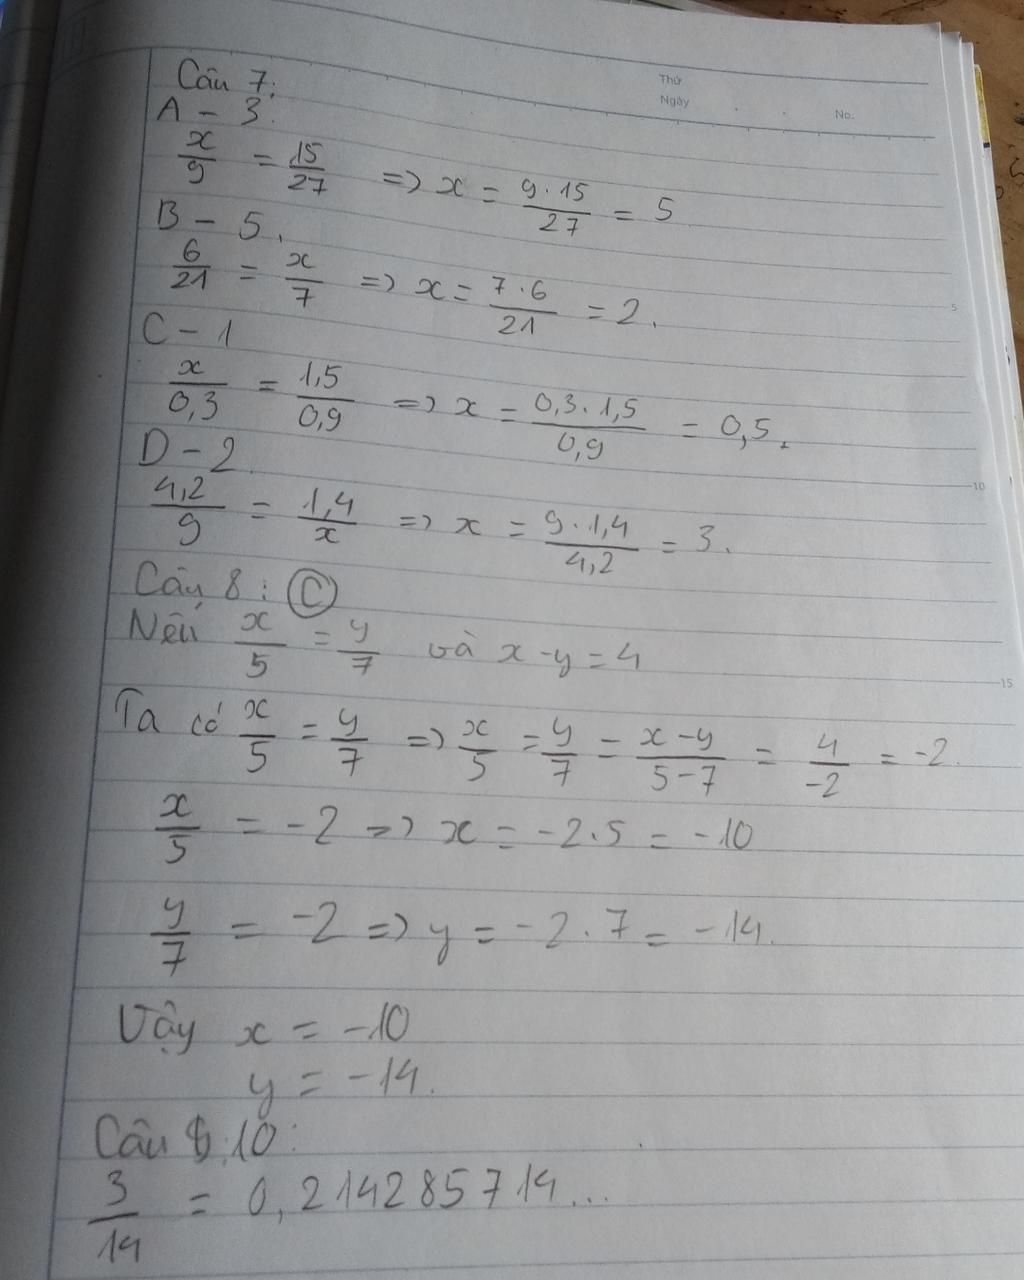 Câu 7:
Thứ
Ngày
No.
A - 3.
x/9 = 15/27 => x = 9.15/27 = 5
B - 5.
6/21 = x/7 => x = 7.6/21 = 2.
5
C - 1
x/0,3 = 1,5/0,9 => x = 0,3.1,5/0,9 = 0,5.
D - 2.
10
4,2/9 = 1,4/x => x = 9.1,4/4,2 = 3.
Câu 8: C
Nếu x/5 = y/7 và x-y = 4
15
Ta có x/5 = y/7 => x/5 = y/7 = x-y/5-7 = 4/-2 = -2.
x/5 = -2 => x = -2.5 = -10
y/7 = -2 => y = -2.7 = -14.
Vậy x = -10
y = -14.
Câu 10:
3/14 = 0,2142857 14...